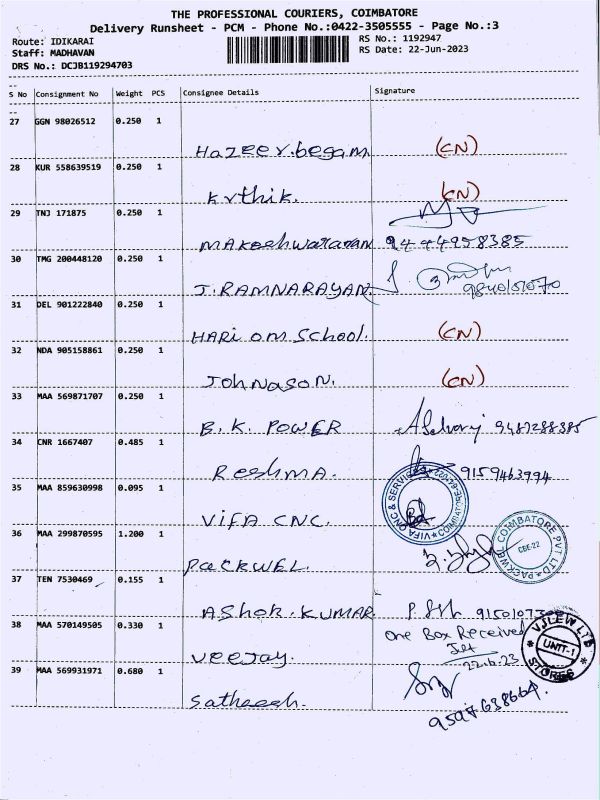 THE PROFESSIONAL COURIERS, COIMBATORE
Delivery Runsheet - PCM - Phone No.:0422-3505555 - Page No.:3
Route: IDIKARAI RS No.: 1192947
Staff: MADHAVAN RS Date: 22-Jun-2023
DRS No.: DCJB119294703
S No Consignment No Weight PCS Consignee Details Signature
27 GGN 98026512 0.250 1
Hazeer.begam (CN)
28 KUR 558639519 0.250 1
Krthik. (CN)
29 TNJ 171875 0.250 1
Makeshwataran 9444958385
30 TMG 200448120 0.250 1
J.RAMNARAYAN 9840101070
31 DEL 901222840 0.250 1
HARi om School. (CN)
32 NDA 905158861 0.250 1
JohNASON. (CN)
33 MAA 569871707 0.250 1
B.K. POWER 9487288385
34 CNR 1667407 0.485 1
ReshmA. 9159463994
35 MAA 859630998 0.095 1
VIFA CNC & SERVICES COIMBATORE
VIFA CNC.
36 MAA 299870595 1.200 1
PACKWEL COIMBATORE PVT LTD CBE-22
PACKWEL.
37 TEN 7530469 0.155 1
AShok.KUMAR
38 MAA 570149505 0.330 1
One Box Received
VJLEW LTD UNIT-1 STORES
Veejay. 22.6.23
39 MAA 569931971 0.680 1
Satheesh.
9597638664.